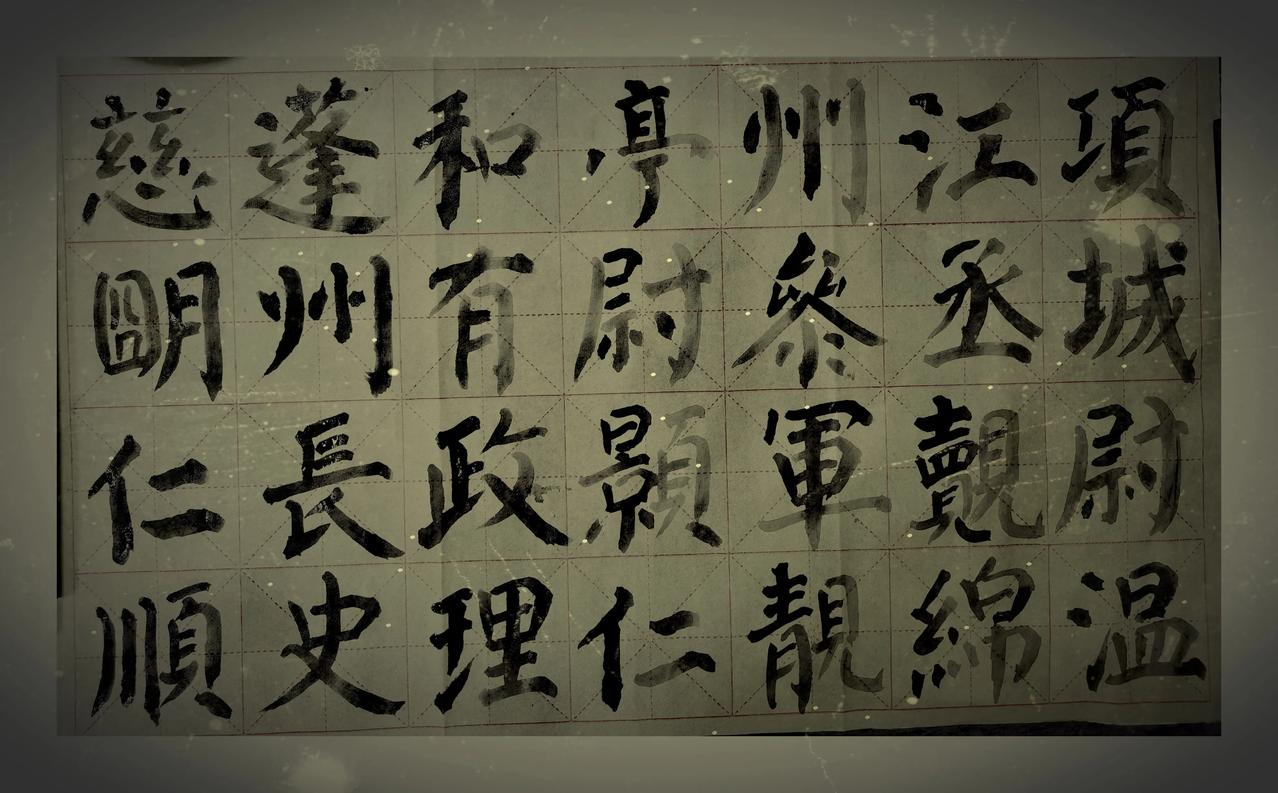 項城尉温
江丞覿綿
州參軍靚
亭尉顥仁
和有政理
蓬州長史
慈朙仁順